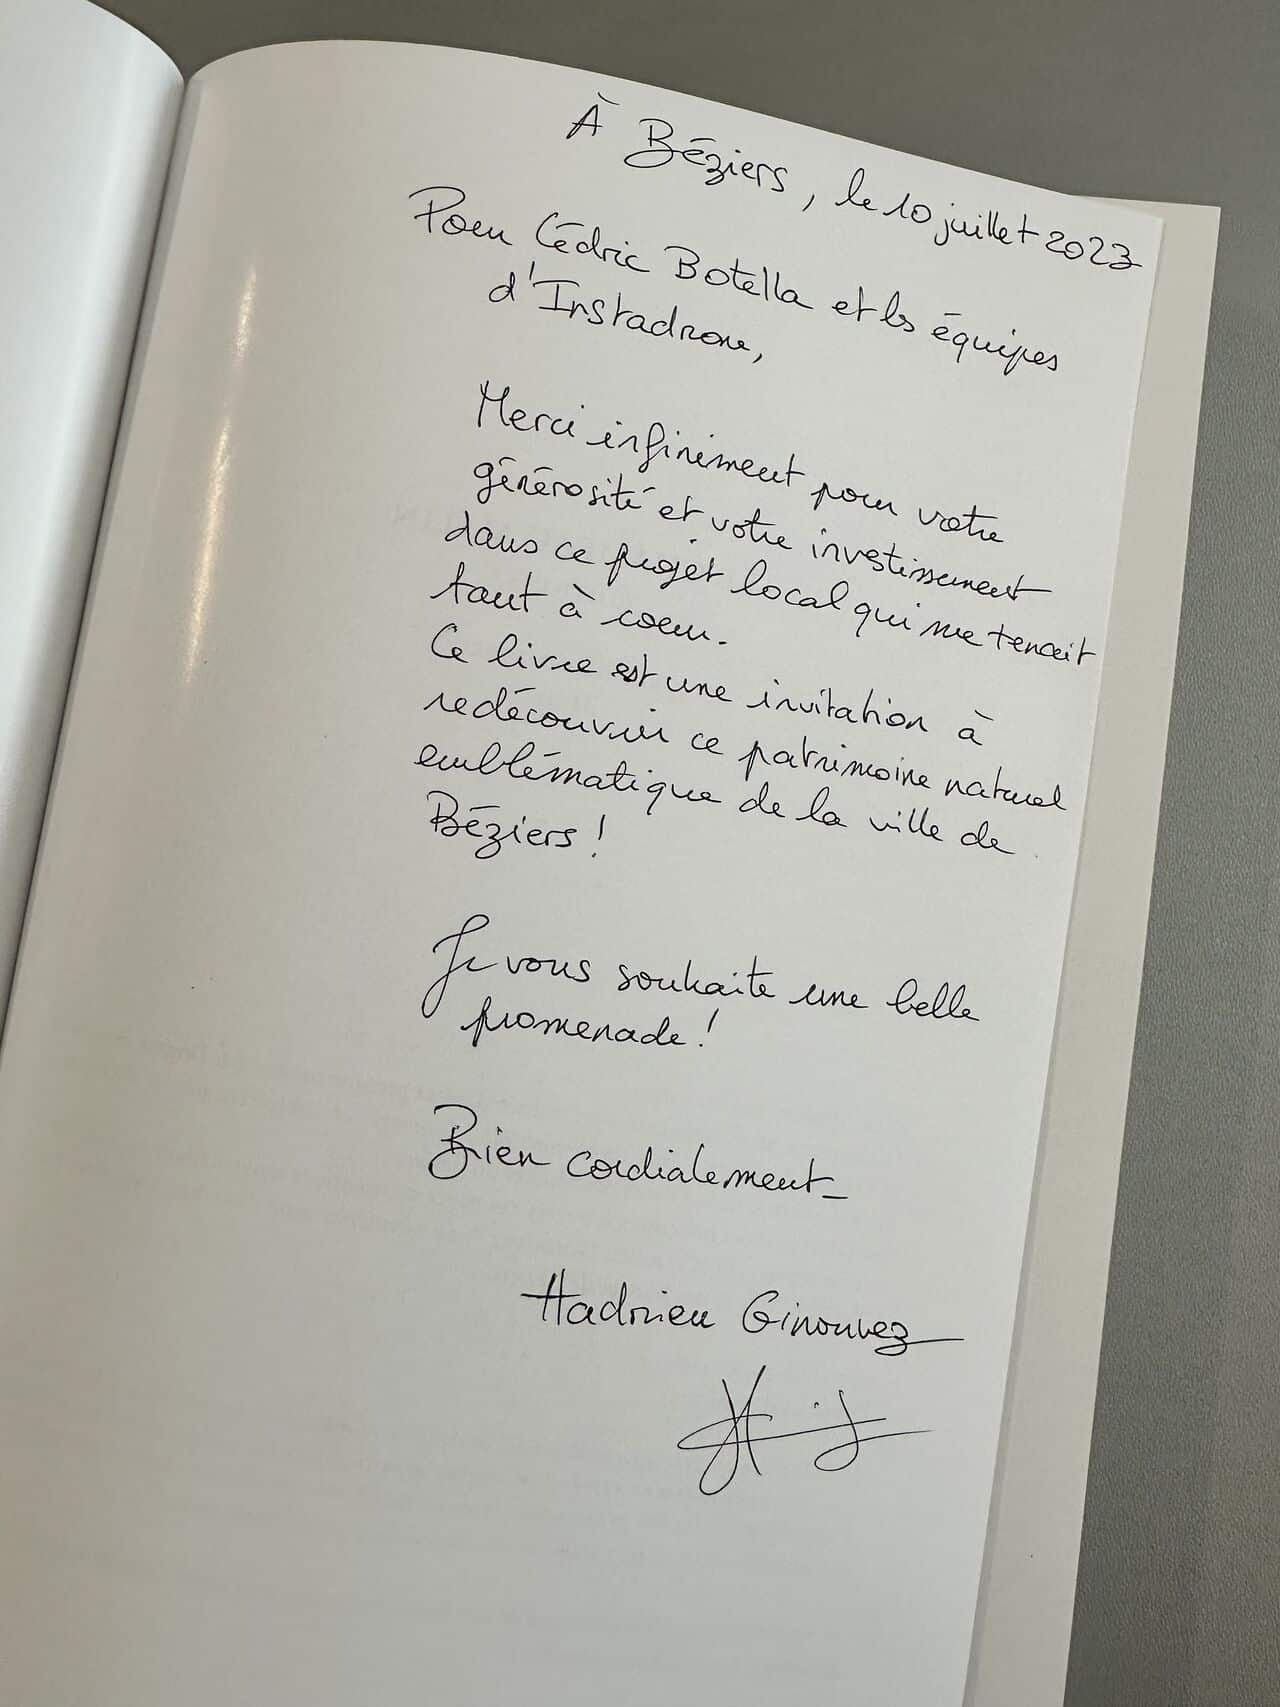 À Béziers, le 10 juillet 2023
Pour Cédric Botella et les équipes
d'Instadrone,
Merci infiniment pour votre
générosité et votre investissement
dans ce projet local qui me tenait
tant à coeur.
Ce livre est une invitation à
redécouvrir ce patrimoine naturel
emblématique de la ville de
Béziers !
Je vous souhaite une belle
promenade !
Bien cordialement_
Hadrien Ginouvez